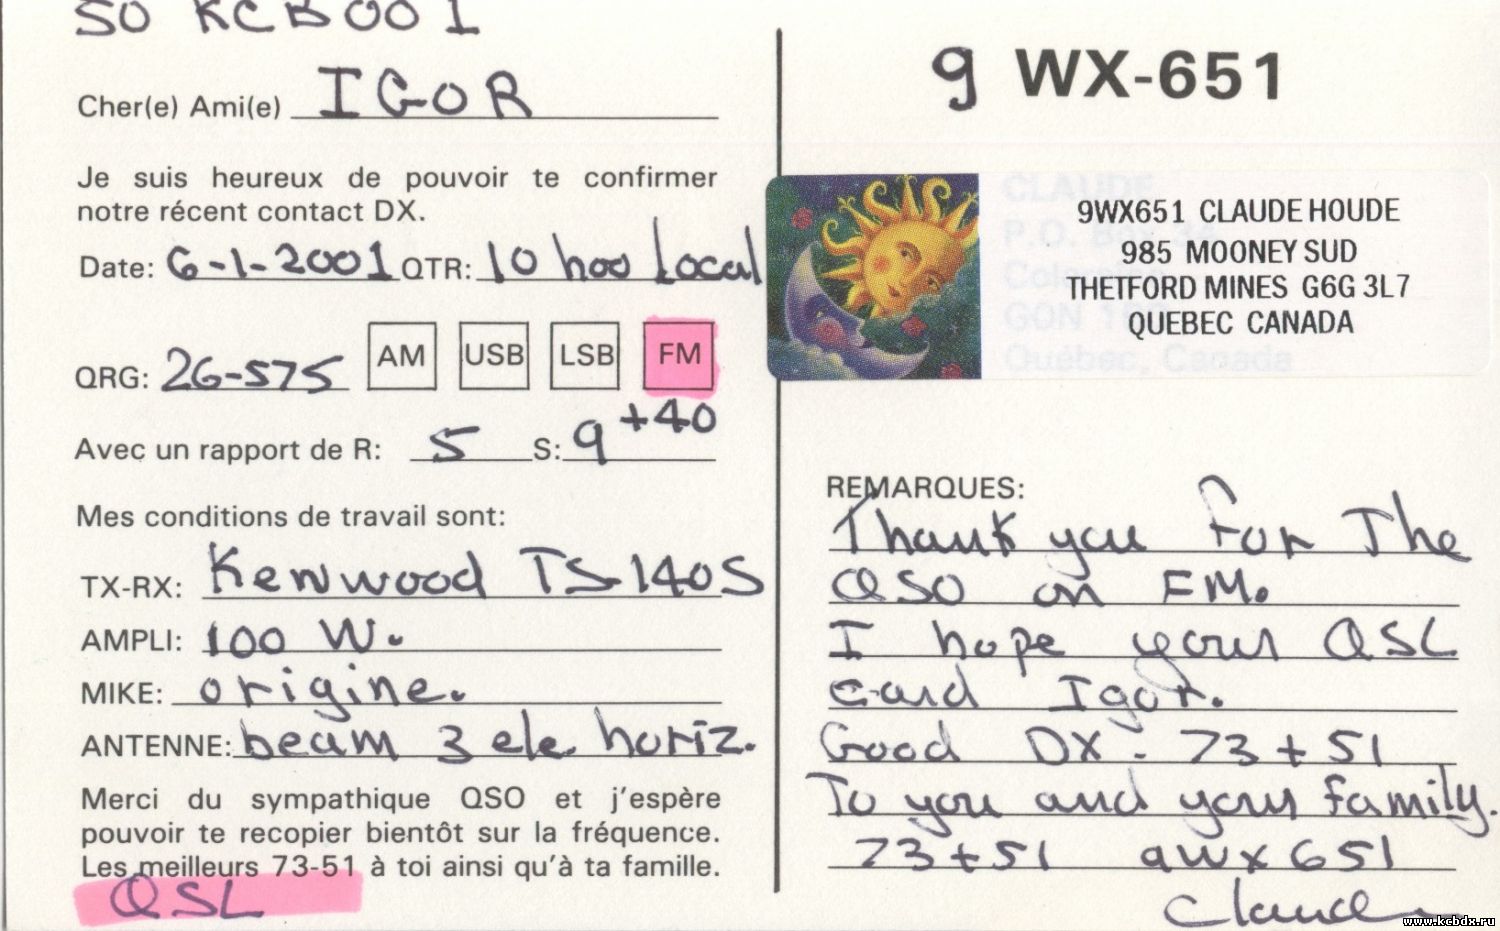 50 KCB001
Cher(e) Ami(e) IGOR
Je suis heureux de pouvoir te confirmer
notre récent contact DX.
Date: 6-1-2001 QTR: 10 h00 Local
QRG: 26-575 AM USB LSB FM
Avec un rapport de R: 5 S: 9 +40
Mes conditions de travail sont:
TX-RX: Kenwood TS-140S
AMPLI: 100 W.
MIKE: origine.
ANTENNE: beam 3 ele. horiz.
Merci du sympathique QSO et j'espère
pouvoir te recopier bientôt sur la fréquence.
Les meilleurs 73-51 à toi ainsi qu'à ta famille.
QSL
9 WX-651
9WX651 CLAUDE HOUDE
985 MOONEY SUD
THETFORD MINES G6G 3L7
QUEBEC CANADA
CLAUDE
P.O. Box 34
Coleraine
G0N 1B0
Québec, Canada
REMARQUES:
Thank you for The
QSO on FM.
I hope your QSL
card Igor.
Good DX - 73+51
To you and your family.
73+51 9WX651
Claude
www.kcbdx.ru